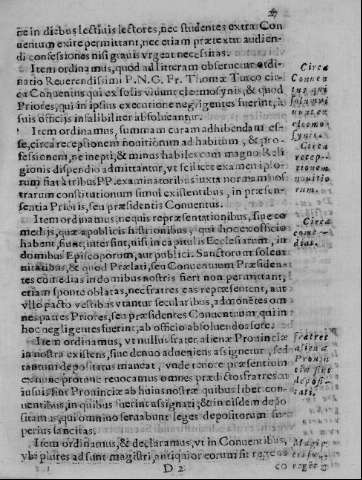 27
ne in diebus lectiuis lectores, nec studentes extra Con
uentum exire permittant, nec etiam prætextu audien-
di confessiones nisi grauis vrgeat necessitas.
Item ordinamus, quod ad litteram obseruetur ordi-
natio Reuerendissimi P.N.G. Fr. Thomæ Turco cir-
ca Conuentus qui ex solis viuunt eleemosynis, & quod
Priores, qui in ipsius executione negligentes fuerint, à
suis officijs infalibiliter absoluantur.
Item ordinamus, summam curam adhibendam es-
se, circa receptionem nouitiorum ad habitum, & pro-
fessionem, ne inepti, & minus habiles cum magno Reli-
gionis dispendio admittantur, vt scilicet examen ipso-
rum fiat à tribus PP. examinatoribus iuxta normam nos
trarum constitutionum simul existentibus, in præsen-
sentia Prioris, seu præsidentis Conuentus.
Item ordinamus, nequis repræsentationibus, siue co
medijs, quæ a publicis histrionibus, qui hoc ex officio
habent, fiunt, intersint, nisi in capitulis Ecclesiarum, in
domibus Episcoporum, aut publici. Sanctorum solem
nitatibus, & quod Prælati, seu Conuentuum Præsiden
tes comedias in domibus nostris fieri non permittant,
etiam sponte oblatas, nec fratres eas repræsentent, aut
vllo pacto vestibus vtantur secularibus, admonētes om
nes patres Priores, seu præsidentes Conuentuum, qui in
hoc negligentes fuerint, ab officio absoluendos fore.
Item ordinamus, vt nullus frater alienæ Prouinciæ
in nostra existens, siue denuo adueniens assignetur, sed
tantum depositus maneat, vnde tenore præsentium
ex nunc pro tunc reuocamus omnes prædictos fratres ad
huiusmodi
tra
uentibus, in quibus fuerint assignati, & in eisdem depo
sitamus, qui omnino seruabunt leges depositorum su-
perius sancitas.
Item ordinamus, & declaramus, vt in Conuentibus,
vbi plures adsunt magistri, antiquior eorum sit
D 2
Circa
Conuen
tus qui
solū viuunt ex
eleemosynis.
Circa
receptionem
nouitiorum.
Circa
comedias.
Fratres
alienæ
Prouin
tiæ sint
depositati.
Magis